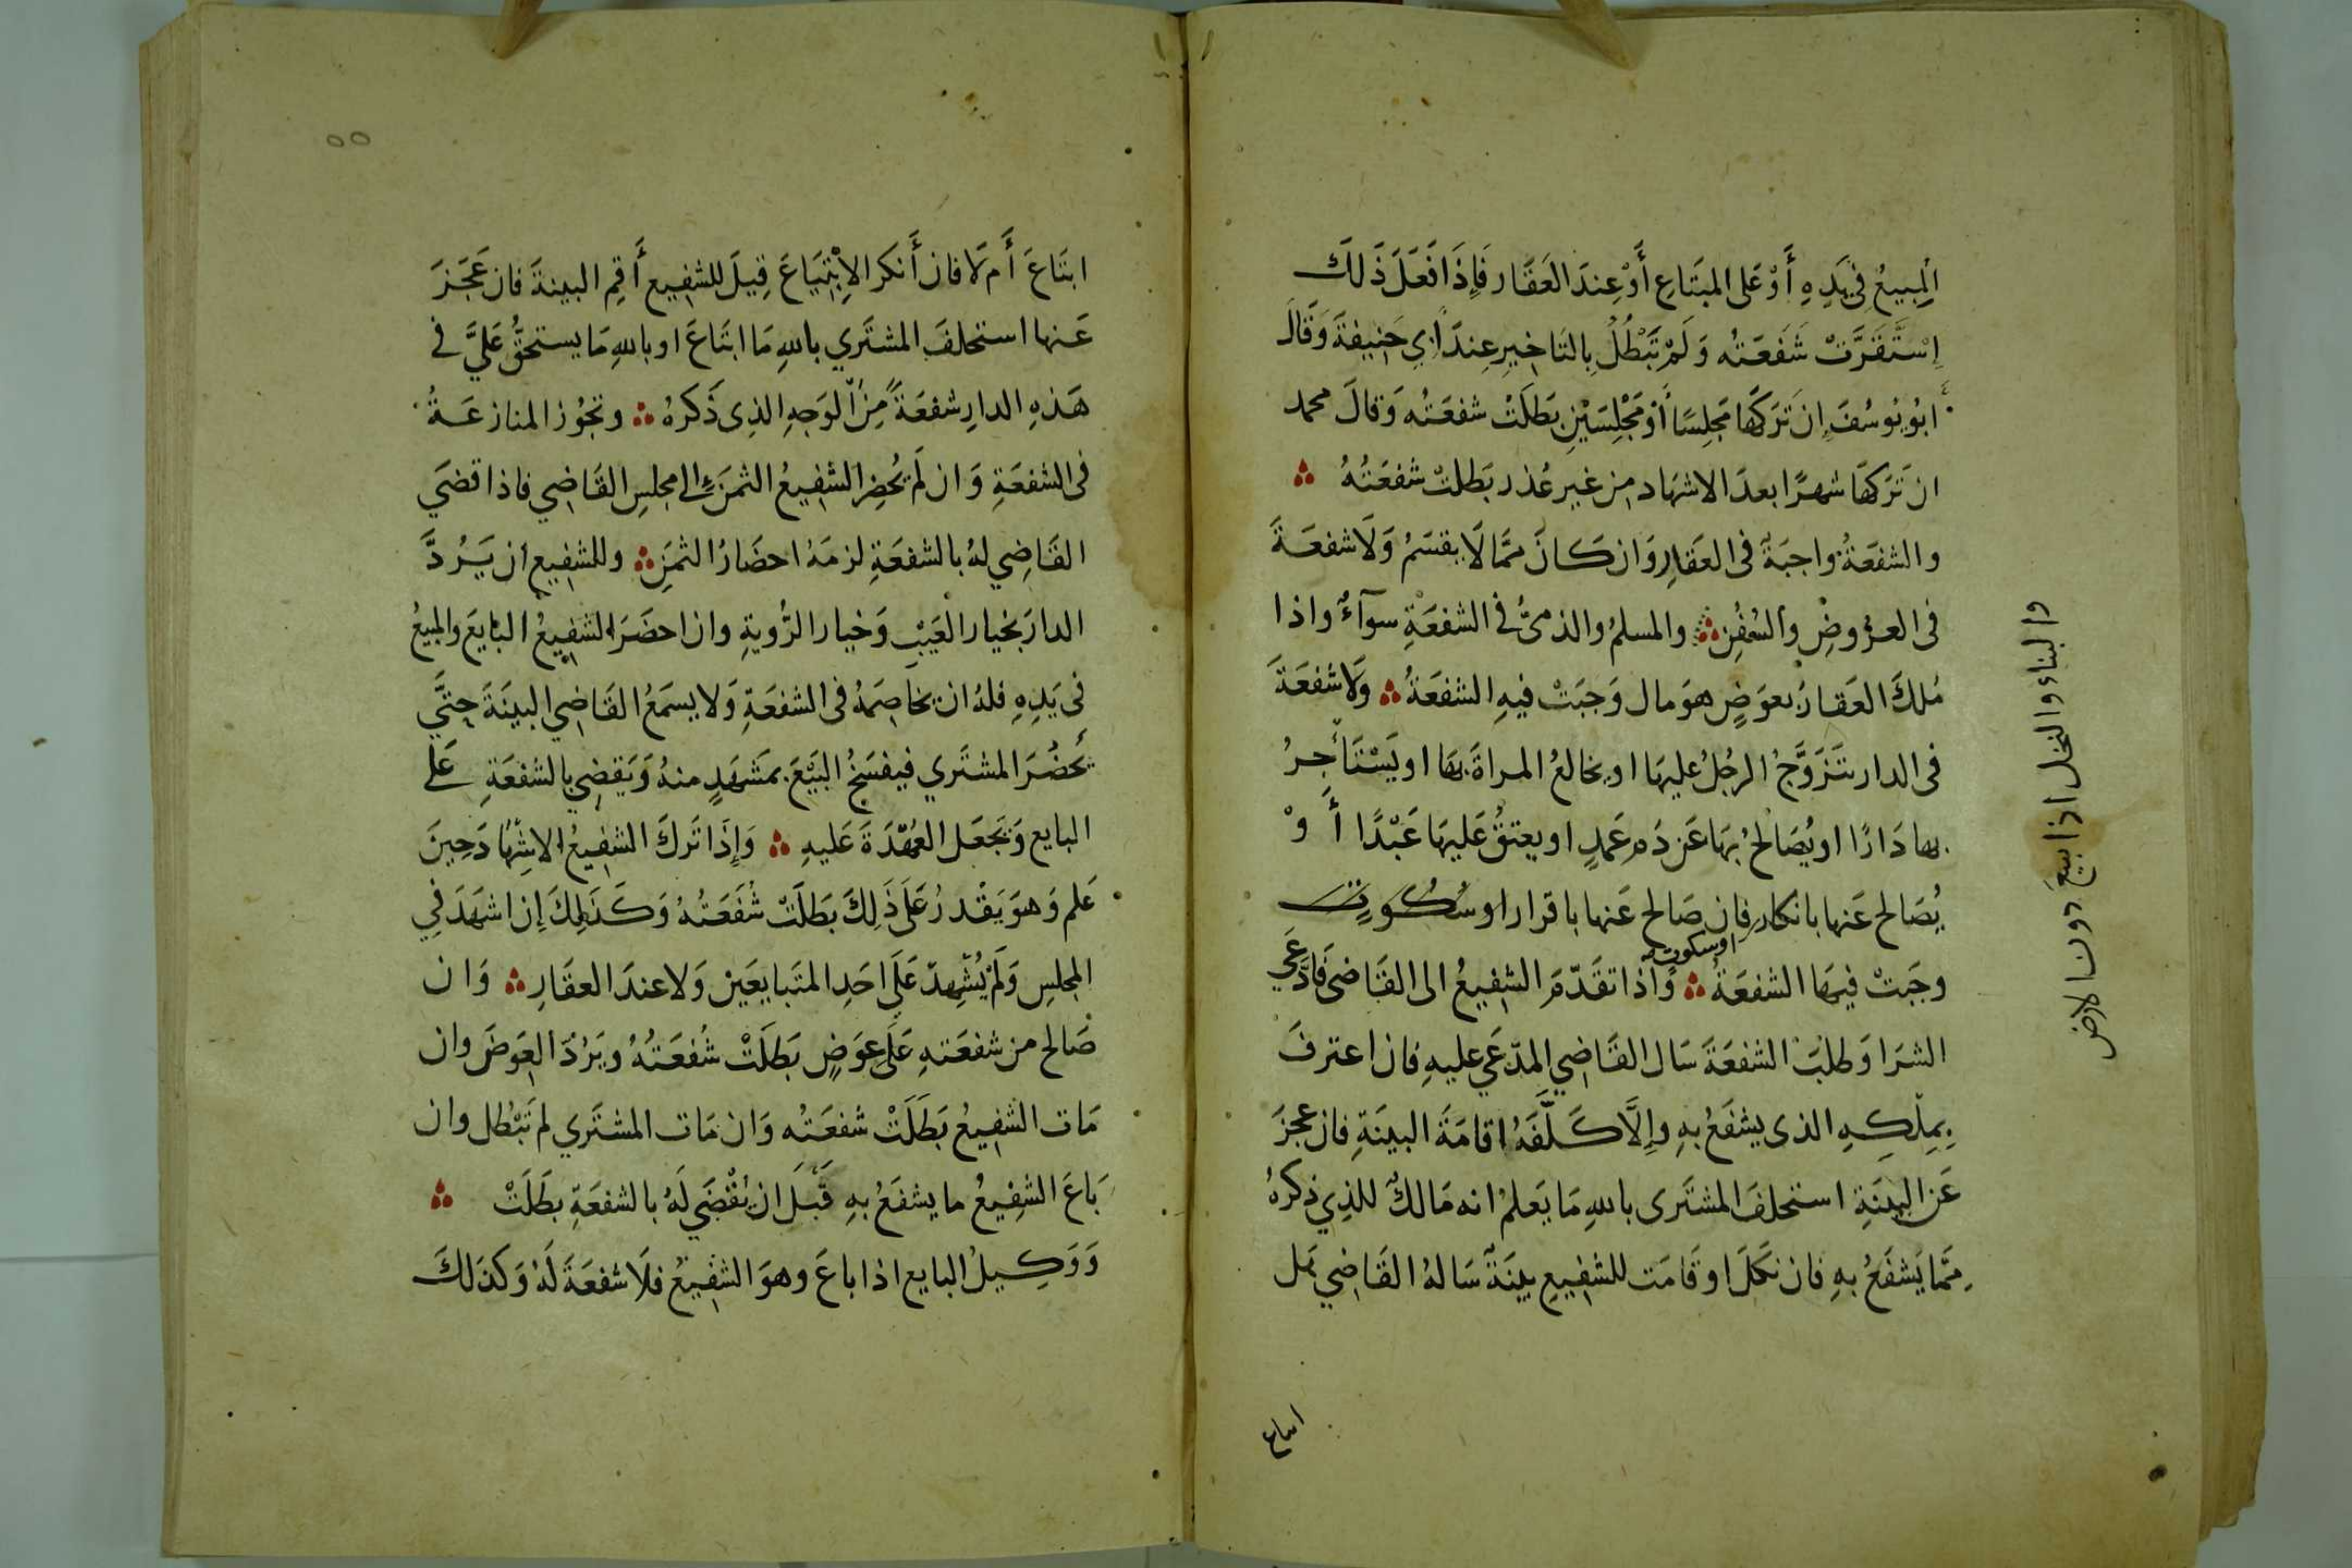 المبيعُ فِي يَدِهِ أَوْ عَلى المبتَاعِ أَوْ عِندَ العَقَار فَإِذَا فَعَلَ ذَلكَ
إِسْتَقَرَّتْ شَفعَتُه وَلَمْ تَبْطُلْ بِالتَاخيرِ عِندَ أَبِي حَنِيفَةَ وَقَالَ
ابُو يُوسُفَ إِن تَرَكَهَا مَجلِسًا أَوْ مَجْلِسَيْنِ بَطَلَتْ شفعَتُه وَقالَ محمد
ان تَرَكهَا شهرًا بعدَ الاشهَاد مِن غير عُذر بَطلتْ شفعَتُهُ ؞
والشفعَةُ واجبَة فى العَقارِ وَان كَانَ ممَّا لَا يقسَمُ وَلَا شفعَةَ
فى العرُوضِ والسُفُنِ ؞ والمسلمُ والذمىُّ فى الشفعَةِ سوآءٌ واذا
مُلكَ العَقارُ بعوَضٍ هوَ مال وَجبَتْ فيهِ الشفعَةُ ؞ وَلَا شفعَةَ
فى الدار يتَزَوَّجُ الرجُلُ عليهَا او يخالعُ المراةَ بهَا او يَسْتَأجِرُ
بها دَارًا او يُصَالحُ بهَا عَن دَم عَمدٍ او يعتقُ عَليهَا عَبْدًا أَ وْ
يُصَالح عَنها بانكار فان صَالح عَنها باقرار او سُكُوتٍ
اوسكوت
وجَبَتْ فيهَا الشفعَةُ ؞ وَاذا تقَدّمَ الشفِيعُ الى القَاضى فَادَّعَي
الشرَا وَطلبَ الشفعَةَ سَال القَاضِي المدّعَي عليهِ فان اعترفَ
بِمِلكِهِ الذى يشفَعُ بهِ وإِلَّا كَلَّفَهُ اقامَةَ البينَةِ فان عجزَ
عَن البينَةِ استحلفَ المشتَرى باللهِ مَا يَعلمُ انه مَالكٌ للذِي ذكرهُ
مِمَّا يَشفَعُ بهِ فان نكَلَ او قَامَت للشفِيعِ بينَةٌ سَالهُ القَاضِي هَل
ابتاع
والبناء والنخل اذا بيعَ دون الارض
٥٥
ابتَاعَ أَم لَا فان أَنكر الإِبْتِيَاعَ قِيلَ للشفِيع أَقِم البينةَ فان عَجَزَ
عَنها استحلفَ المشتَري باللهِ مَا ابتَاعَ او باللهِ مَا يستحقُّ عَليَّ فى
هَذهِ الدارِ شفعَةً مِنَ الوَجهِ الذِى ذَكرهُ ؞ وتجُوز المنازعَةُ
فى الشفعَةِ وَان لَم يُحضِر الشفِيعُ الثمَنَ الى مجلسِ القَاضِي فاذا قضَي
القَاضِي لهُ بالشفعَةِ لزمَهُ احضَارُ الثمَنِ ؞ وللشفِيعِ ان يَرُدَّ
الدارَ بخيار العَيْبِ وَخيار الرُّويةِ وان احضَرَ الشفِيعُ البايعَ والمبيعُ
فى يَدِهِ فلهُ ان يخاصِمَهُ فى الشفعَةِ وَلا يسمَعُ القَاضِي البينَةَ حتَّي
يَحضُرَ المشتَري فيفسَخُ البَيْعَ بمَشهَدٍ منهُ وَيَقضِي بالشفعَةِ عَلى
البايع وَيَجعَل العُهْدَةَ عَليهِ ؞ وَإِذَا تَركَ الشفِيعُ الاشْهَادَ حِينَ
عَلم وَهوَ يَقْدرُ عَلَى ذَلِكَ بَطَلَتْ شُفعَتُهُ وَكَذَلِكَ إِن اشهَدَ فِي
المجلسِ وَلَمْ يُشْهِدْ عَلَى احَدِ المتَبايعَين وَلا عندَ العقَارِ ؞ وَان
صَالح من شفعَتهِ عَلَى عِوَضٍ بَطَلَتْ شفعَتُهُ ويَرُدّ العِوَضَ وان
مَات الشفِيعُ بَطَلَتْ شفعَتُه وَان مَات المشتَري لم تَبْطُل وان
بَاعَ الشفِيعُ ما يشفَعُ بهِ قَبْلَ ان يُقْضَي لَهُ بالشفعَةِ بطَلَتْ ؞
وَوَكِيلُ البايع اذا باعَ وهوَ الشفِيعُ فلَا شفعَةَ لَهُ وَكذَلكَ